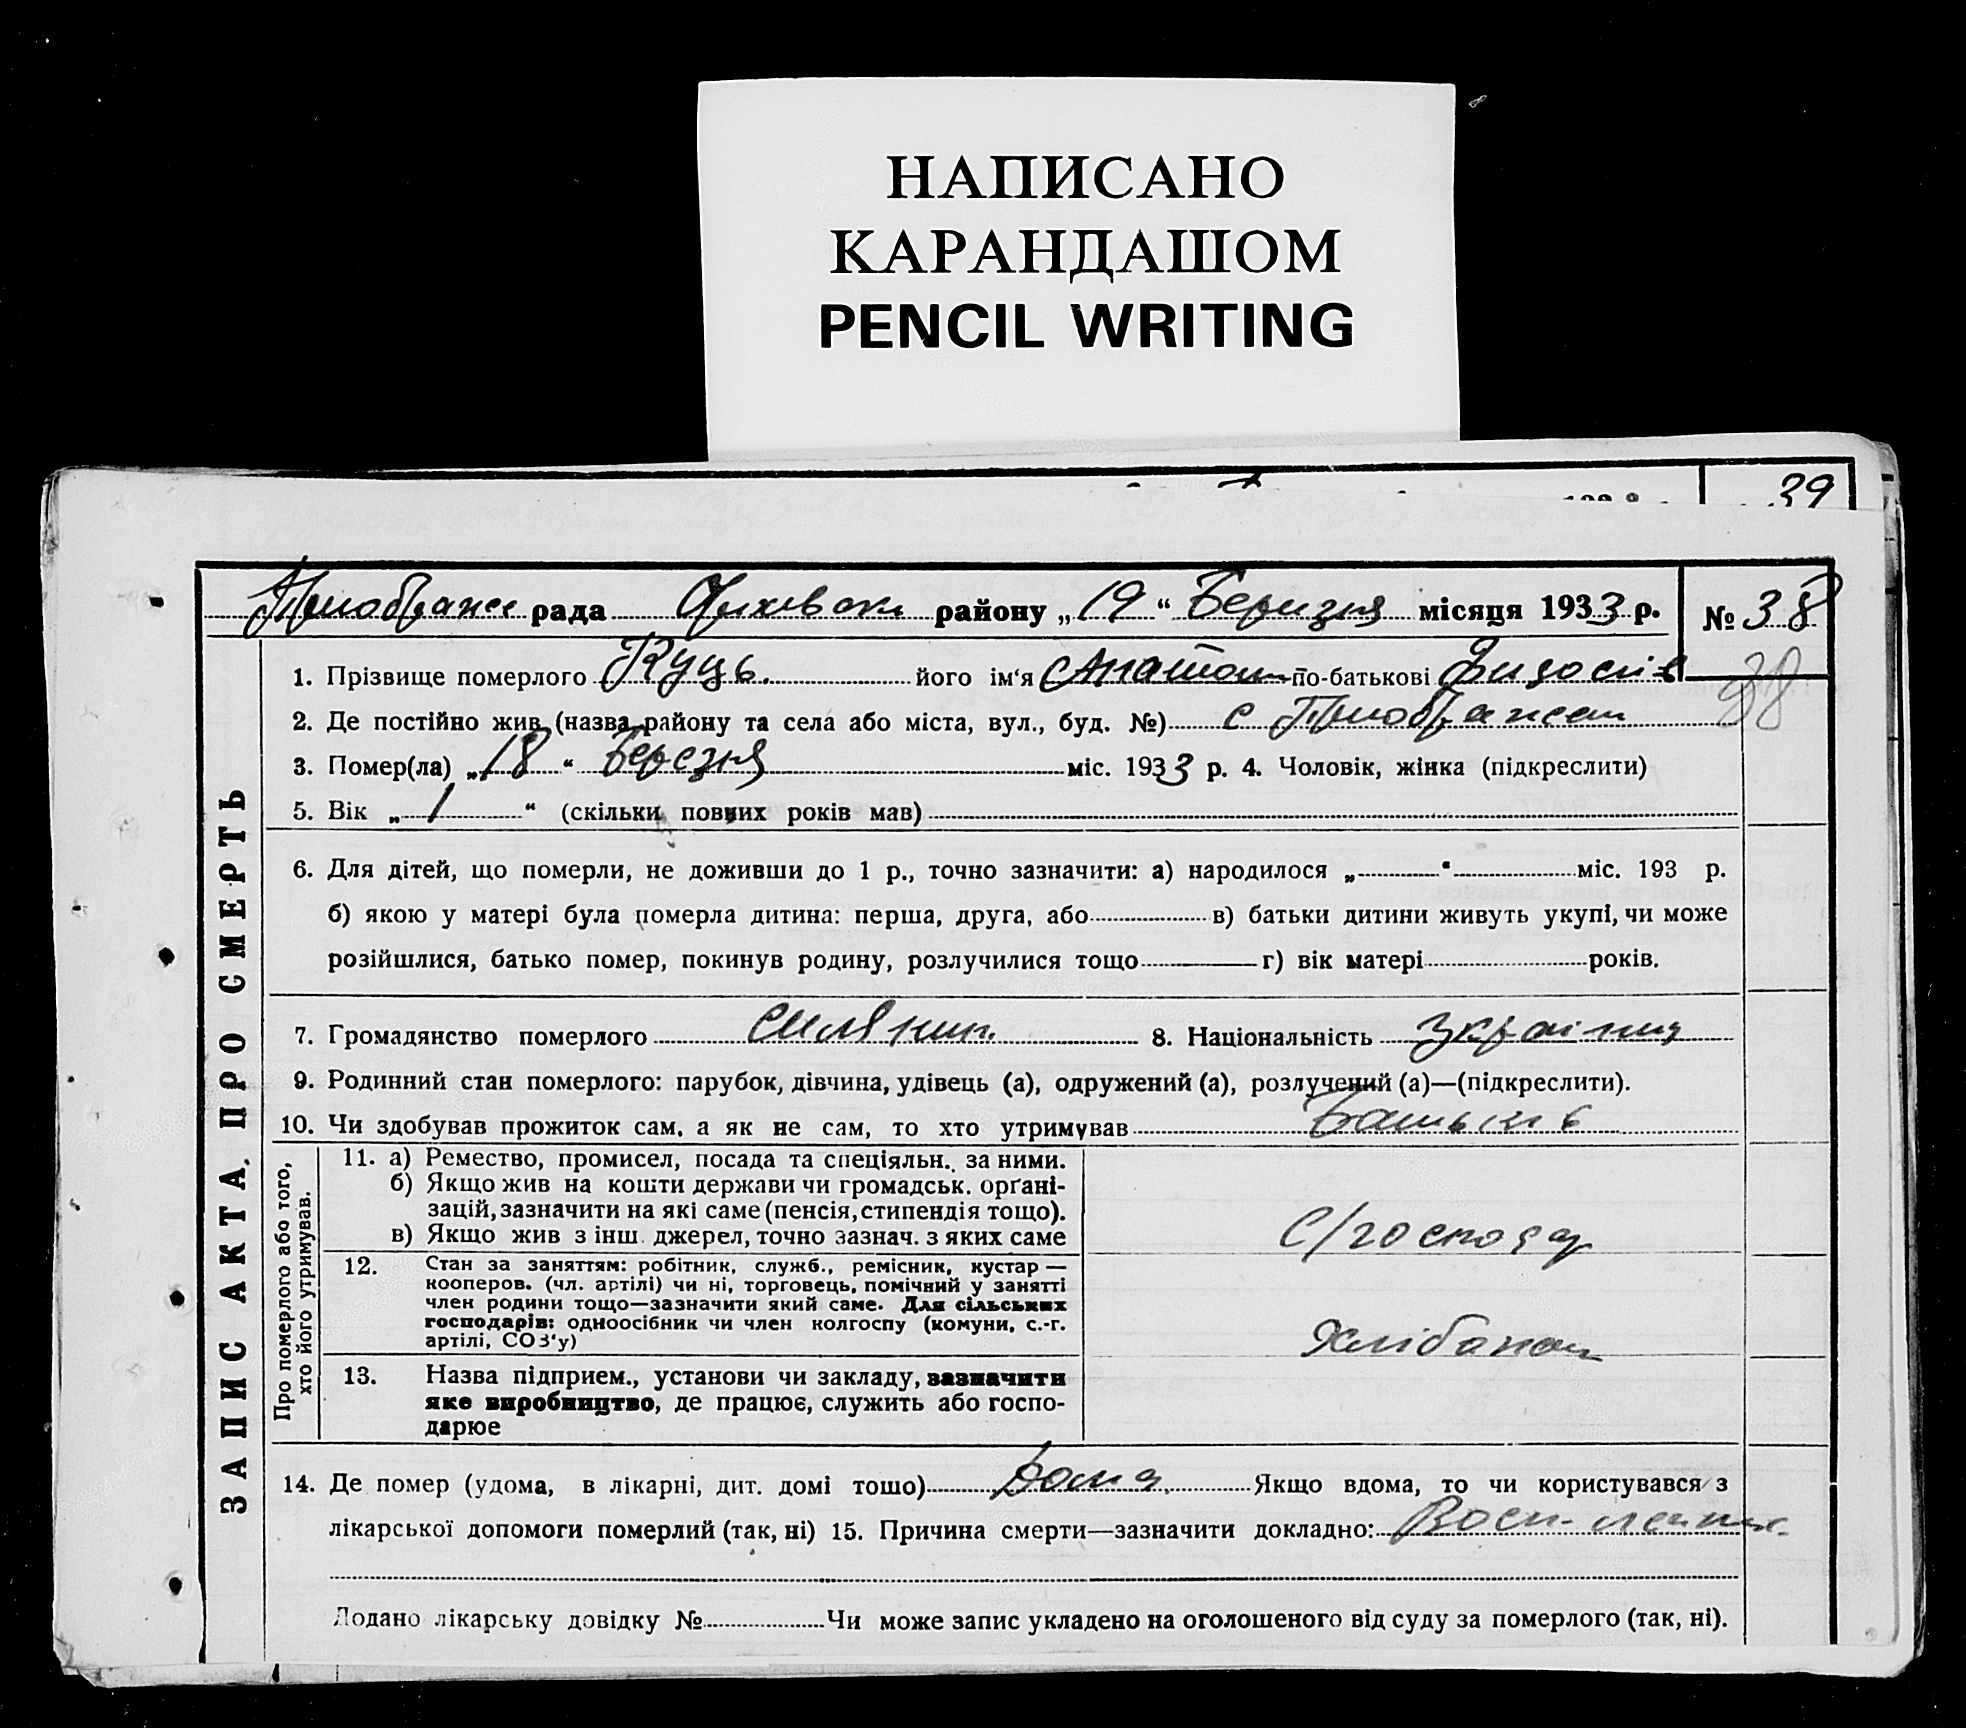 НАПИСАНО
КАРАНДАШОМ
PENCIL WRITING
39
рада району „19“ Березня місяця 1933 р. № 38
38
1. Прізвище померлого Куць. його ім‘я по-батькові
2. Де постійно жив (назва району та села або міста, вул., буд. №) с
3. Помер(ла) „18“ Березня міс. 1933 р. 4. Чоловік, жінка (підкреслити)
5. Вік „1“ (скільки повних років мав)
6. Для дітей, що померли, не доживши до 1 р., точно зазначити: а) народилося „ “ міс. 193 р.
б) якою у матері була померла дитина: перша, друга, або в) батьки дитини живуть укупі, чи може
розійшлися, батько помер, покинув родину, розлучилися тощо г) вік матері років.
7. Громадянство померлого 8. Національність
9. Родинний стан померлого: парубок, дівчина, удівець (а), одружений (а), розлучений (а)—(підкреслити).
10. Чи здобував прожиток сам, а як не сам, то хто утримував
11. а) Ремество, промисел, посада та спеціяльн. за ними.
б) Якщо жив на кошти держави чи громадськ. орґані-
зацій, зазначити на які саме (пенсія, стипендія тощо).
в) Якщо жив з інш. джерел, точно зазнач. з яких саме
С/господар
12. Стан за заняттям: робітник, служб., ремісник, кустар —
кооперов. (чл. артілі) чи ні, торговець, помічний у занятті
член родини тощо—зазначити який саме. Для сільських
господарів: одноосібник чи член колгоспу (комуни, с.-г.
артілі, СОЗ‘у)
13. Назва підприєм., установи чи закладу, зазначити
яке виробництво, де працює, служить або госпо-
дарює
14. Де помер (удома, в лікарні, дит. домі тощо) Дома. Якщо вдома, то чи користувався з
лікарської допомоги померлий (так, ні) 15. Причина смерти—зазначити докладно:
Додано лікарську довідку № Чи може запис укладено на оголошеного від суду за померлого (так, ні).
ЗАПИС АКТА ПРО СМЕРТЬ
Про померлого або того,
хто його утримував.